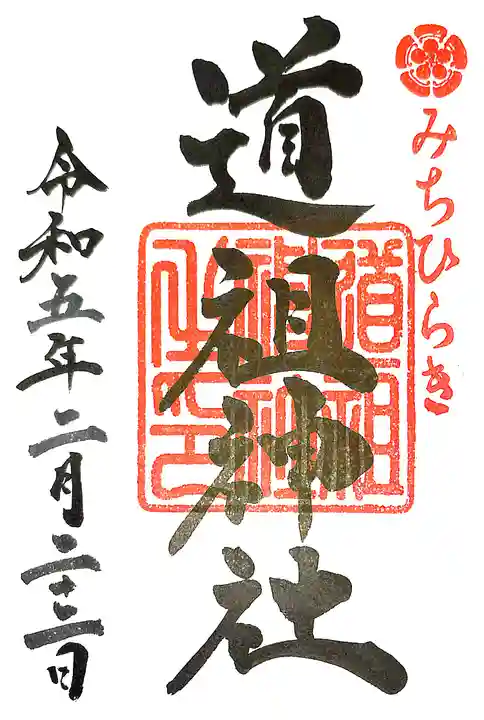 みちひらき
道祖神社
道祖神社之印
令和五年二月二十三日